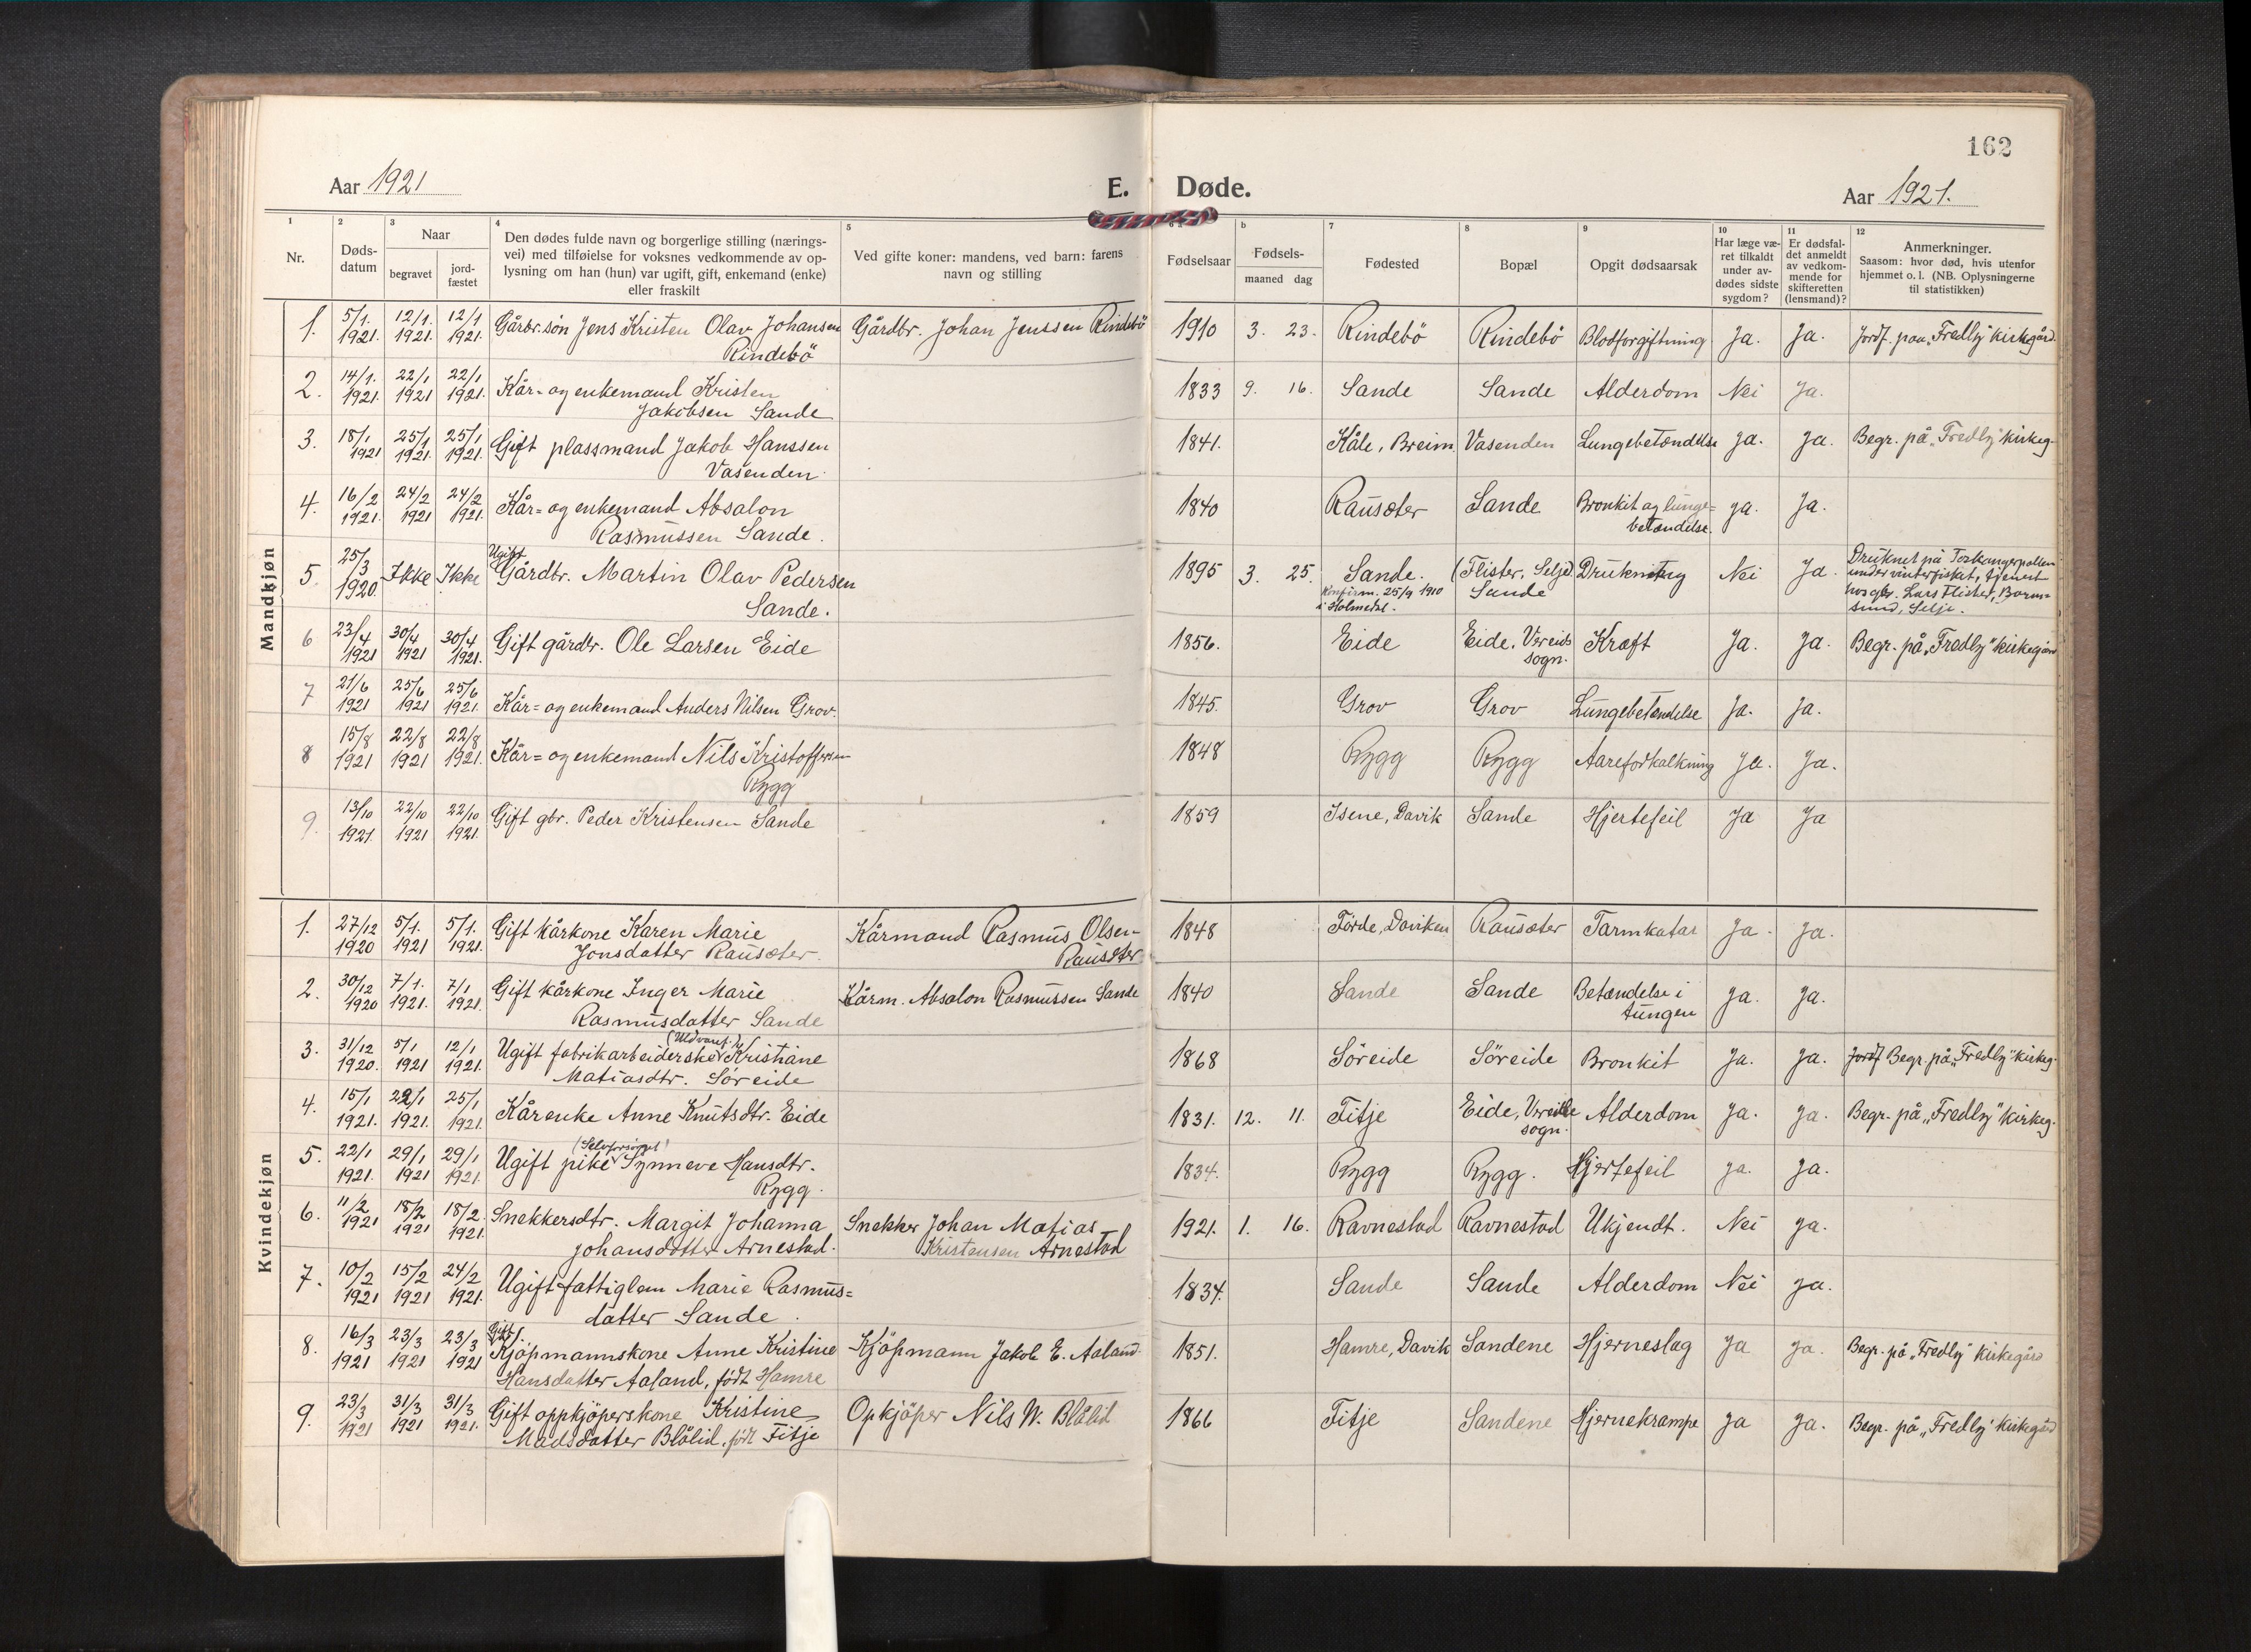 162
Aar 1921
E. Døde.
Aar 1921.
1 2 3 4 5 6 a b 7 8 9 10 11 12
Nr.
Døds-
datum
Naar
begravet
jord-
fæstet
Den dødes fulde navn og borgerlige stilling (nærings-
vei) med tilføielse for voksnes vedkommende av op-
lysning om han (hun) var ugift, gift, enkemand (enke)
eller fraskilt
Ved gifte koner: mandens, ved barn: farens
navn og stilling
Fødselsaar
Fødsels-
maaned dag
Fødested
Bopæl
Opgit dødsaarsak
Har læge væ-
ret tilkaldt
under av-
dødes sidste
sygdom?
Er dødsfal-
det anmeldt
av vedkom-
mende for
skifteretten
(lensmand)?
Anmerkninger.
Saasom: hvor død, hvis utenfor
hjemmet o. l. (NB. Oplysningerne
til statistikken)
Mandkjøn
1. 5/1. 1921. 12/1. 1921. 12/1 1921. Gårbr.søn Jens Kristen Olav Johansen Gårdbr. Johan Jenssen Rindebö 1910 3. 23. Rindebö Rindebö Blodforgiftning Ja. Ja. Jordf. paa „Fredly" kirkegård.
Rindebö
2. 14/1. 1921. 22/1 1921 22/1 1921. Kår- og enkemand Kristen 1833 9. 16. Sande Sande Alderdom Nei Ja.
Jakobsen Sande
3. 18/1 1921 25/1 1921. 25/1 1921. Gift plassmand Jakob Hanssen 1841. Kåle, Breim. Vasenden Lungebetændelse Ja. Ja. Begr. på „Fredly" kirkeg.
Vasenden
4. 16/2 1921. 24/2 1921 24/2 1921. Kår- og enkemand Absalon 1840 Rausæter Sande Bronkit og lunge- Ja. Ja.
Rasmussen Sande. betændelse.
5. 25/3 1920. Ikke Ikke Ugift Gårdbr. Martin Olav Pedersen 1895 3. 25. Sande. (Flister, Selje) Drukning Nei Ja. Druknet på
Sande. Konfirm. 25/9 1910 Sande under vinterfisket, tjenest
i Holmedal. hos gbr. Lars Flister,
Selje.
6 23/4 1921 30/4 1921 30/4 1921. Gift gårdbr. Ole Larsen Eide 1856. Eide Eide, Vereids Kræft Ja. Ja. Begr. på „Fredly" kirkegård
sogn.
7 21/6 1921 25/6 1921 25/6 1921. Kår- og enkemand Anders Nilsen Grov. 1845. Grov Grov Lungebetændelse Ja. Ja.
8 15/8 1921 22/8 1921 22/8 1921. Kår- og enkemand Nils Kristoffersen 1848 Rygg Rygg Aareforkalkning Ja. Ja.
Rygg
9. 13/10 1921. 22/10 1921 22/10 1921. Gift gbr. Peder Kristensen Sande 1859 Isene, Davik Sande Hjertefeil Ja Ja
Kvindekjøn
1. 27/12 1920 5/1. 1921 5/1. 1921. Gift kårkone Karen Marie Kårmand Rasmus Olsen 1848 Förde, Daviken Rausæter Tarmkatar Ja. Ja.
Jonsdatter Rausæter. Rausæter
2. 30/12 1920 7/1. 1921. 7/1 1921. Gift kårkone Inger Marie Kårm. Absalon Rasmussen Sande 1840 Sande Sande Betændelse i Ja. Ja.
Rasmusdatter Sande tungen
3. 31/12 1920. 5/1 1921 12/1 1921. Ugift fabrikarbeiderske Kristiane 1868 Söreide Söreide Bronkit Ja. Ja. Jordf Begr. på „Fredly" kirkeg.
Matiasdtr. Söreide
4. 15/1 1921. 22/1 1921. 25/1 1921. Kårenke Anne Knutsdtr. Eide 1831. 12. 11. Fitje Eide, Vereide Alderdom Ja. Ja. Begr. på „Fredly" kirkeg.
sogn.
5. 22/1 1921. 29/1 1921 29/1 1921. Ugift pike (Selvforsörget) Synneve Hansdtr. 1834. Rygg Rygg. Hjertefeil Ja. Ja.
Rygg.
6. 11/2 1921 18/2 1921 18/2. 1921. Snekkersdtr. Margit Johanna Snekker Johan Matias 1921. 1. 16. Ravnestad Ravnestad Ukjendt. Nei Ja.
Johansdatter Arnestad. Kristensen Arnestad
7. 10/2 1921 15/2 1921 24/2 1921. Ugift fattiglem Marie Rasmus- 1834. Sande Sande Alderdom Nei Ja.
datter Sande.
8. 16/3 1921 23/3 1921 23/3 1921 Gift Kjöpmannskone Anne Kristine Kjöpmann Jakob E. Aaland 1851. Hamre, Davik Sandene Hjerneslag Ja Ja. Begr. på „Fredly" kirkegård
Hansdatter Aaland, födt Hamre
9. 23/3 1921 31/3 1921 31/3 1921. Gift oppkjöperskone Kristine Opkjöper Nils W. Blålid 1866 Fitje Sandene Hjernekrampe Ja Ja. Begr. på „Fredly" kirkegård
Madsdatter Blålid, födt Fitje